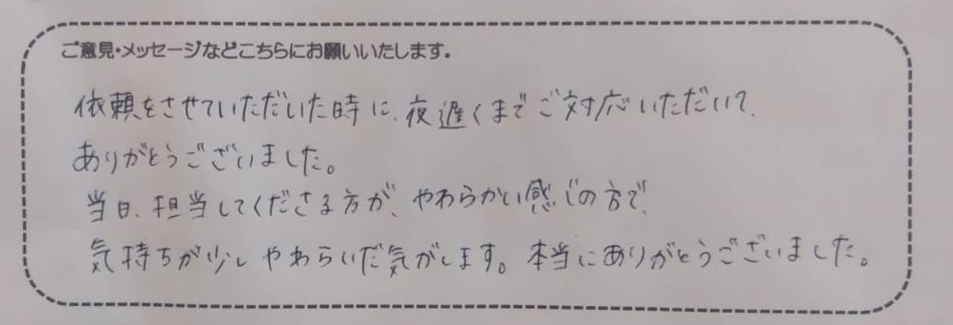 ご意見・メッセージなどこちらにお願いいたします。
依頼をさせていただいた時に、夜遅くまでご対応いただいて、
ありがとうございました。
当日、担当してくださる方が、やわらかい感じの方で、
気持ちが少しやわらいだ気がします。本当にありがとうございました。